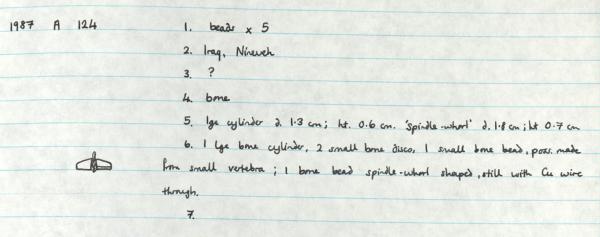 1987 A 124 1. beads x 5
2. Iraq, Nineveh
3. ?
4. bone
5. lge cylinder d. 1.3 cm; ht. 0.6 cm. 'spindle-whorl' d. 1.8 cm; ht 0.7 cm
6. 1 lge bone cylinder, 2 small bone discs, 1 small bone bead, poss. made
from small vertebra; 1 bone bead spindle-whorl shaped, still with Cu wire
through.
7.